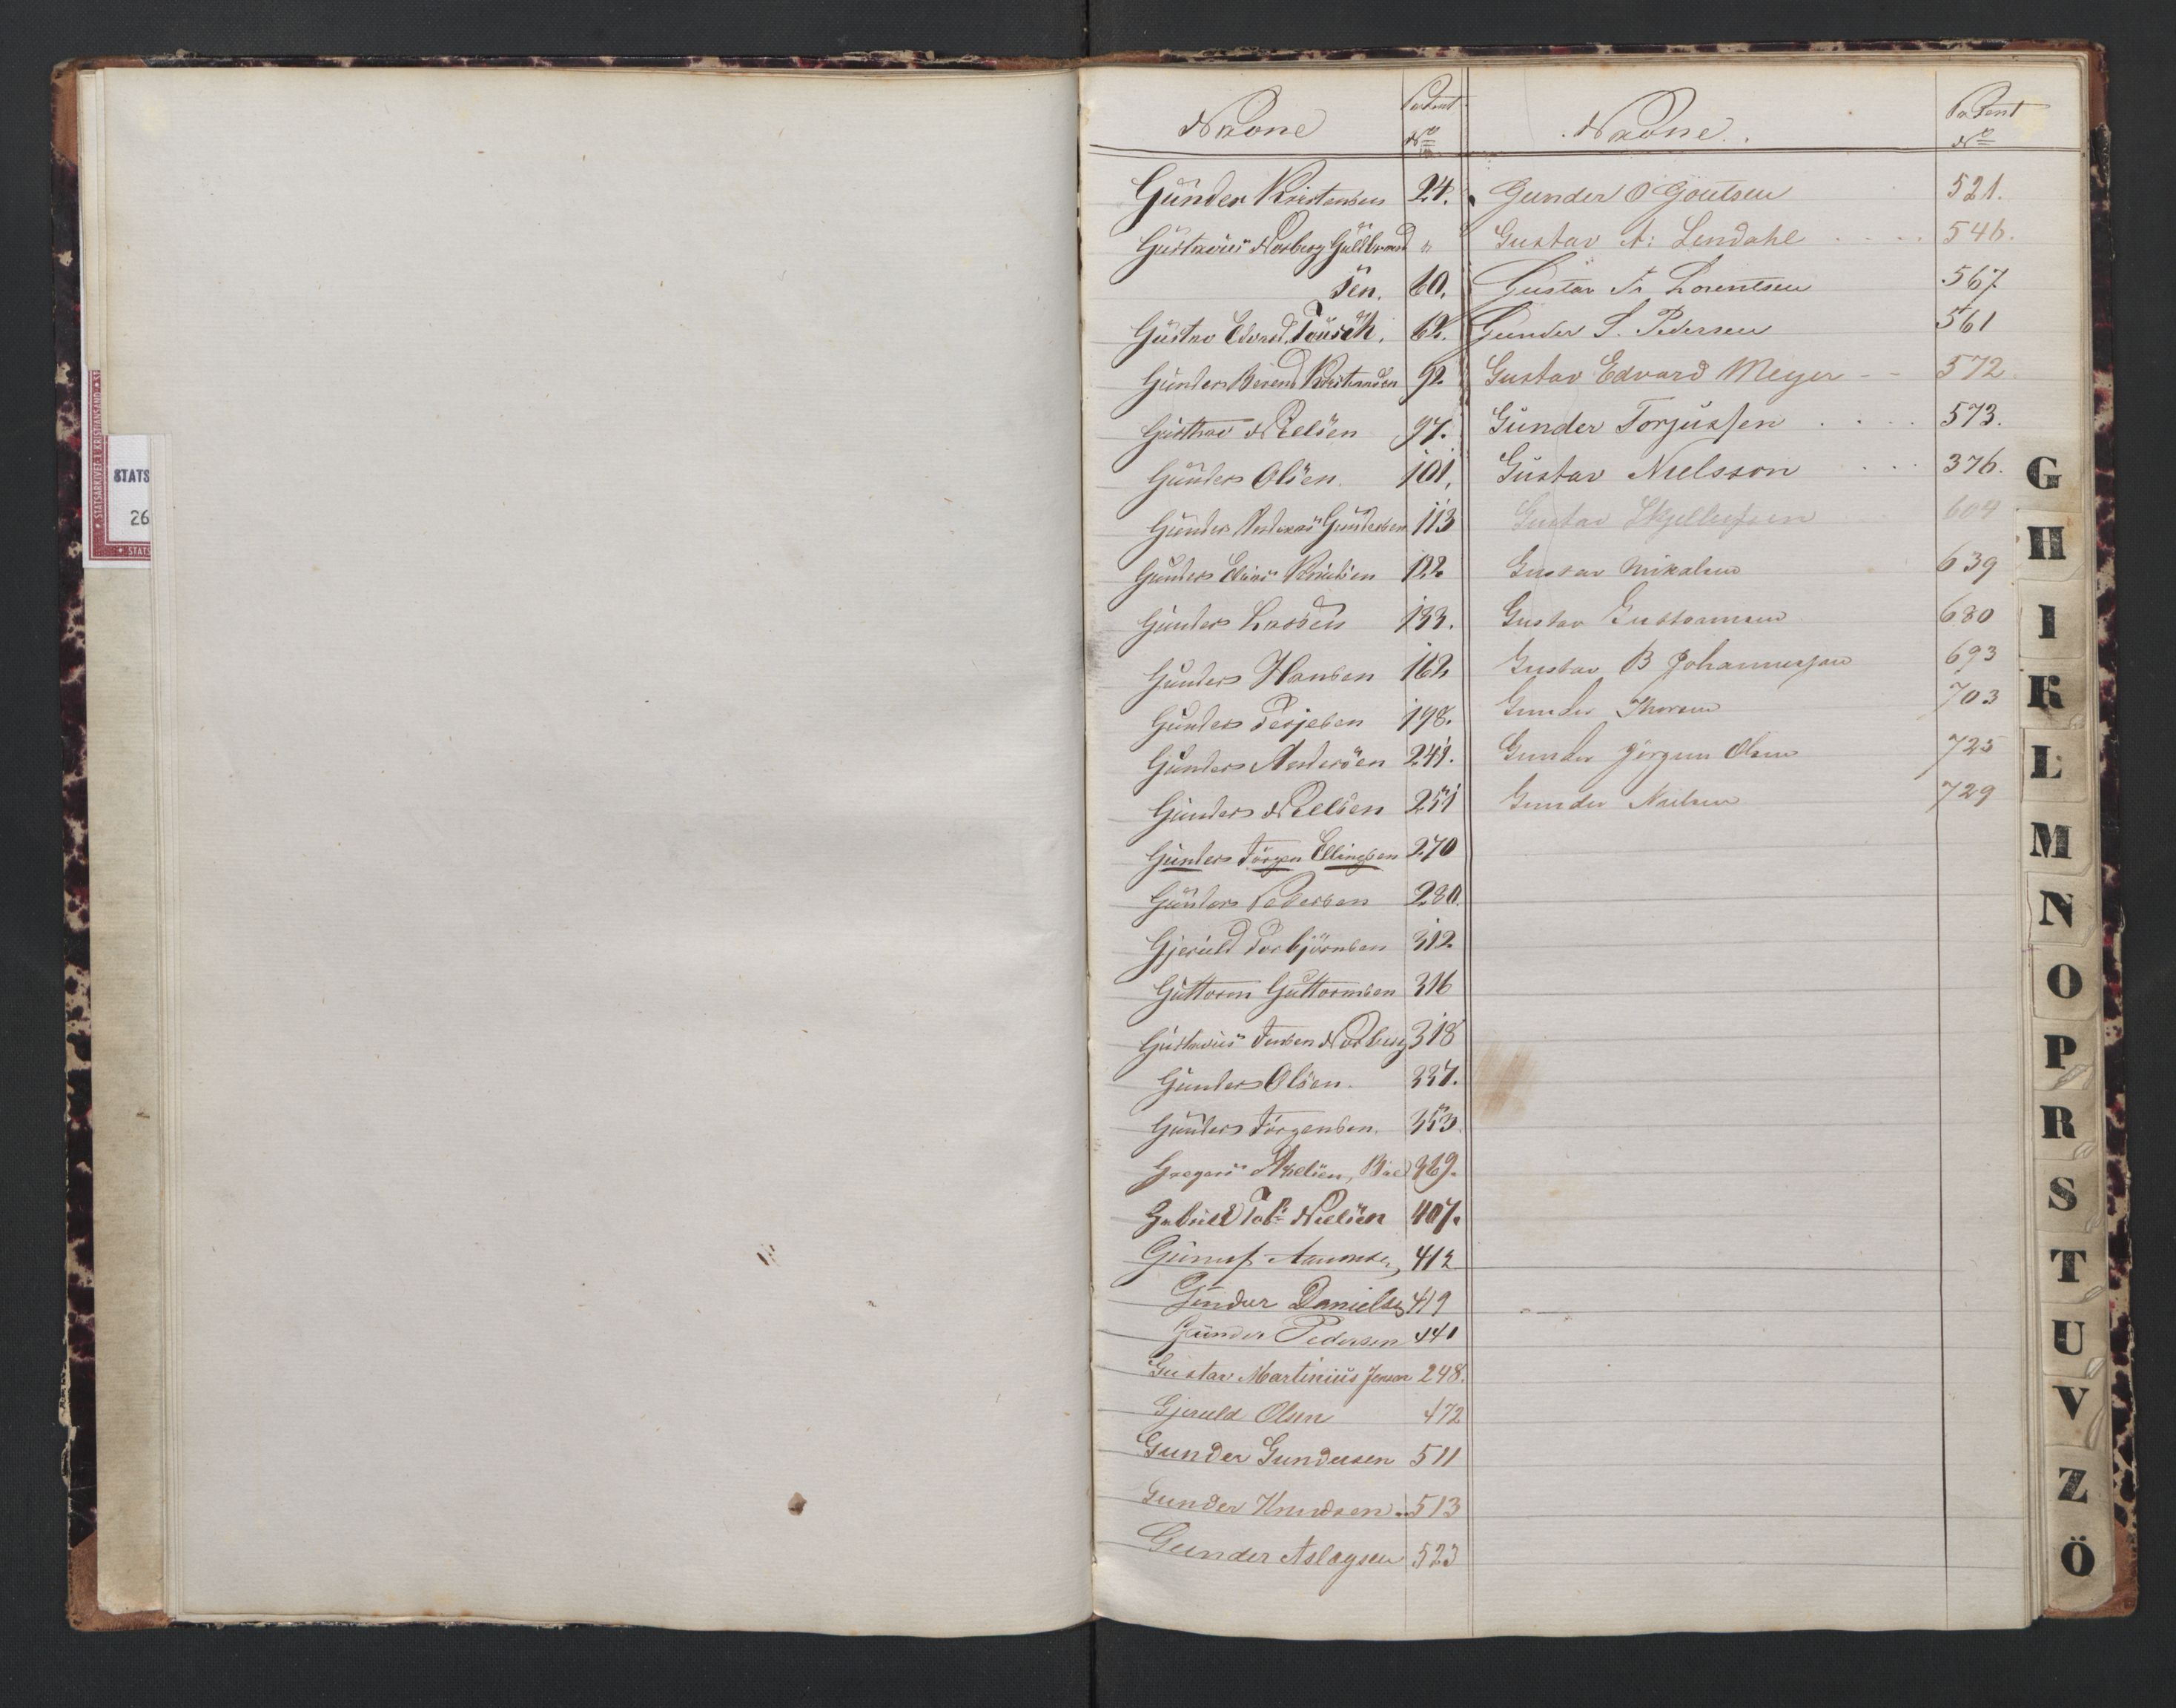 STATS
26
Navne
Patent
No
Gunder Kristensen 24.
Gustavus Norberg Guldbrand "
sen. 60.
Gustav Edvard Tausch. 62.
Gunder Berend Kristensen 92
Gusthav Nielsen 97.
Gunder Olsen. 101.
Gunder Andreas Gundersen 113
Gunder Elias Knudsen 122
Gunder Larsen 133.
Gunder Hansen 162
Gunder Terjesen 198.
Gunder Andersen 241.
Gunder Nielsen 251
Gunder Jörgen Ellingsen 270
Gunder Pedersen 280.
Gjeruld Torbjörnsen 312
Guttorm Guttormsen 316
Gustavus Jensen Norberg 318
Gunder Olsen. 337.
Gunder Jörgensen. 353.
Gregers Nielsen, 369.
Gabriel Tobs Nielsen 407.
412
Gunder Daniels 419
Gunder Pedersen 441
Gustav Martinius Jensen 248.
Gjeruld Olsen 472
Gunder Gundersen 511
Gunder Knudsen 513
Gunder Aslagsen 523
Navne.
Patent
No
Gunder O Goutsen 521.
Gustav A: Lendahl 546.
Gustav A Lorentsen 567
Gunder S. Pedersen 561
Gustav Edvard Meyer 572
Gunder Torjussen 573.
Gustav Nielsson 376.
Gustav 604
Gustav Mikalsen 639
Gustav Gustavnsen 680
Gustav B Johannessen 693
Gunder Thorsen 703
Gunder Jörgen Olsen 725
Gunder Nielsen 729
G
H
I
K
L
M
N
O
P
R
S
T
U
V
Z
Ö